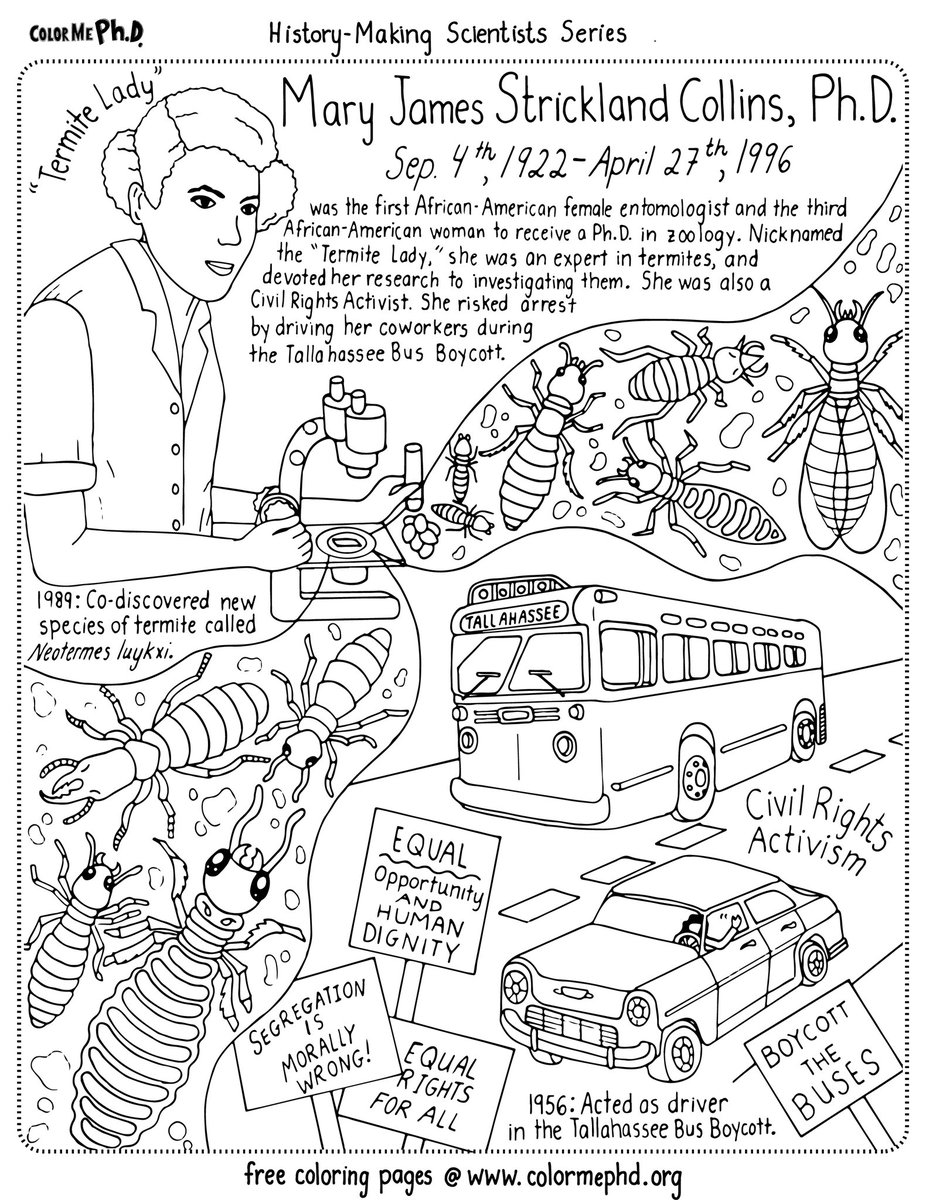 COLOR ME Ph.D.
History-Making Scientists Series
"Termite Lady"
Mary James Strickland Collins, Ph.D.
Sep. 4th, 1922 - April 27th, 1996
was the first African-American female entomologist and the third
African-American woman to receive a Ph.D. in zoology. Nicknamed
the "Termite Lady," she was an expert in termites, and
devoted her research to investigating them. She was also a
Civil Rights Activist. She risked arrest
by driving her coworkers during
the Tallahassee Bus Boycott.
1989: Co-discovered new
species of termite called
Neotermes luykxi.
TALLAHASSEE
Civil Rights
Activism
EQUAL
Opportunity
AND
HUMAN
DIGNITY
SEGREGATION
IS
MORALLY
WRONG!
EQUAL
RIGHTS
FOR ALL
BOYCOTT
THE
BUSES
1956: Acted as driver
in the Tallahassee Bus Boycott.
free coloring pages @ www.colormephd.org